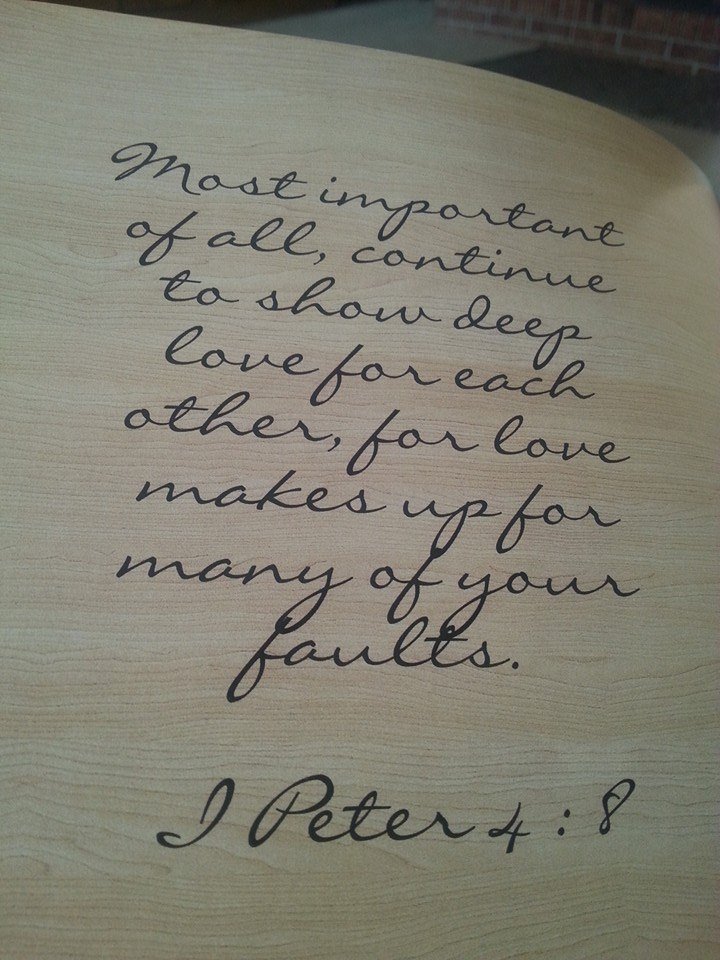 Most important
of all, continue
to show deep
love for each
other, for love
makes up for
many of your
faults.
I Peter 4:8